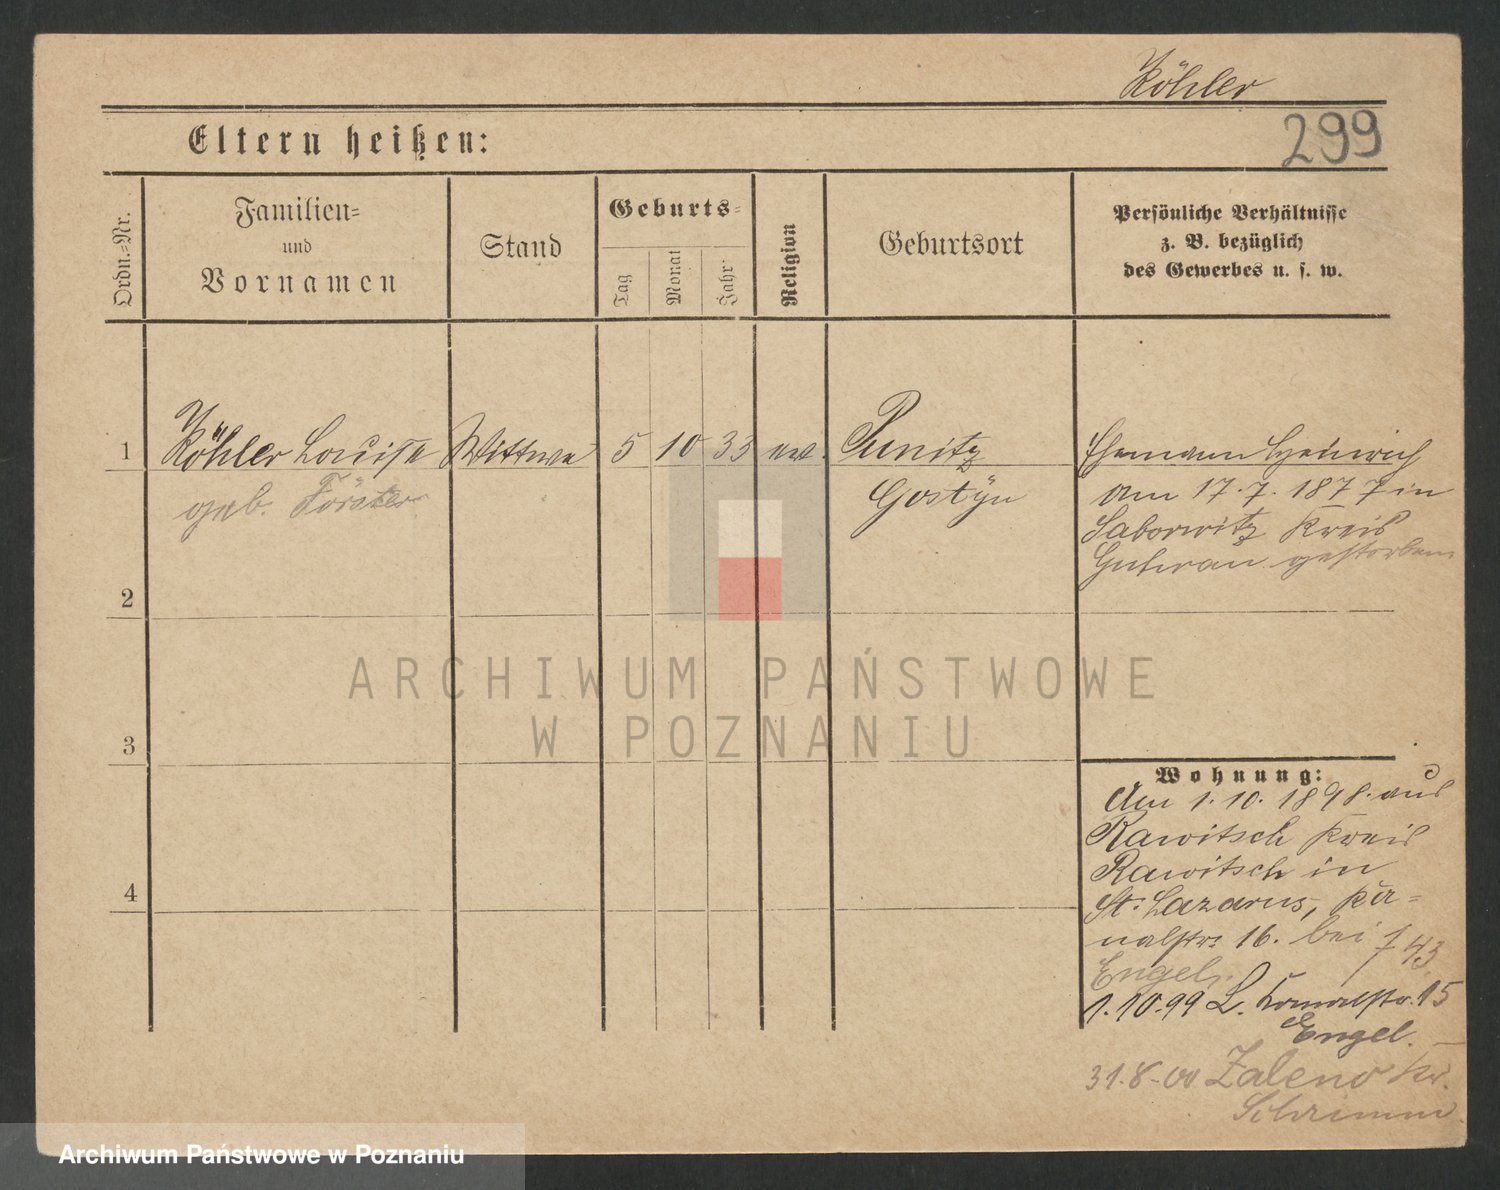 Köhler
299
Eltern heißen:
Ordn.-Nr.
Familien-
und
Vornamen
Stand
Geburts-
Tag
Monat
Jahr
Religion
Geburtsort
Persönliche Verhältnisse
z. B. bezüglich
des Gewerbes u. s. w.
1 Köhler Louise Wittwe 5 10 33 ev. Punitz
geb. Förster
Gostÿn
Ehemann Heinrich
am 17.7.1877 in
Saborwitz Kreis
Guhrau gestorben
2
3
4
ARCHIWUM PAŃSTWOWE
W POZNANIU
Wohnung:
Am 1.10.1898. aus
Rawitsch Kreis
Rawitsch in
St. Lazarus, Ka-
nalstr. 16. bei
Engel.
1.10.99 L. Kanalstr. 15
Engel.
31.8.00 Zaleno Kr.
Schrimm
Archiwum Państwowe w Poznaniu